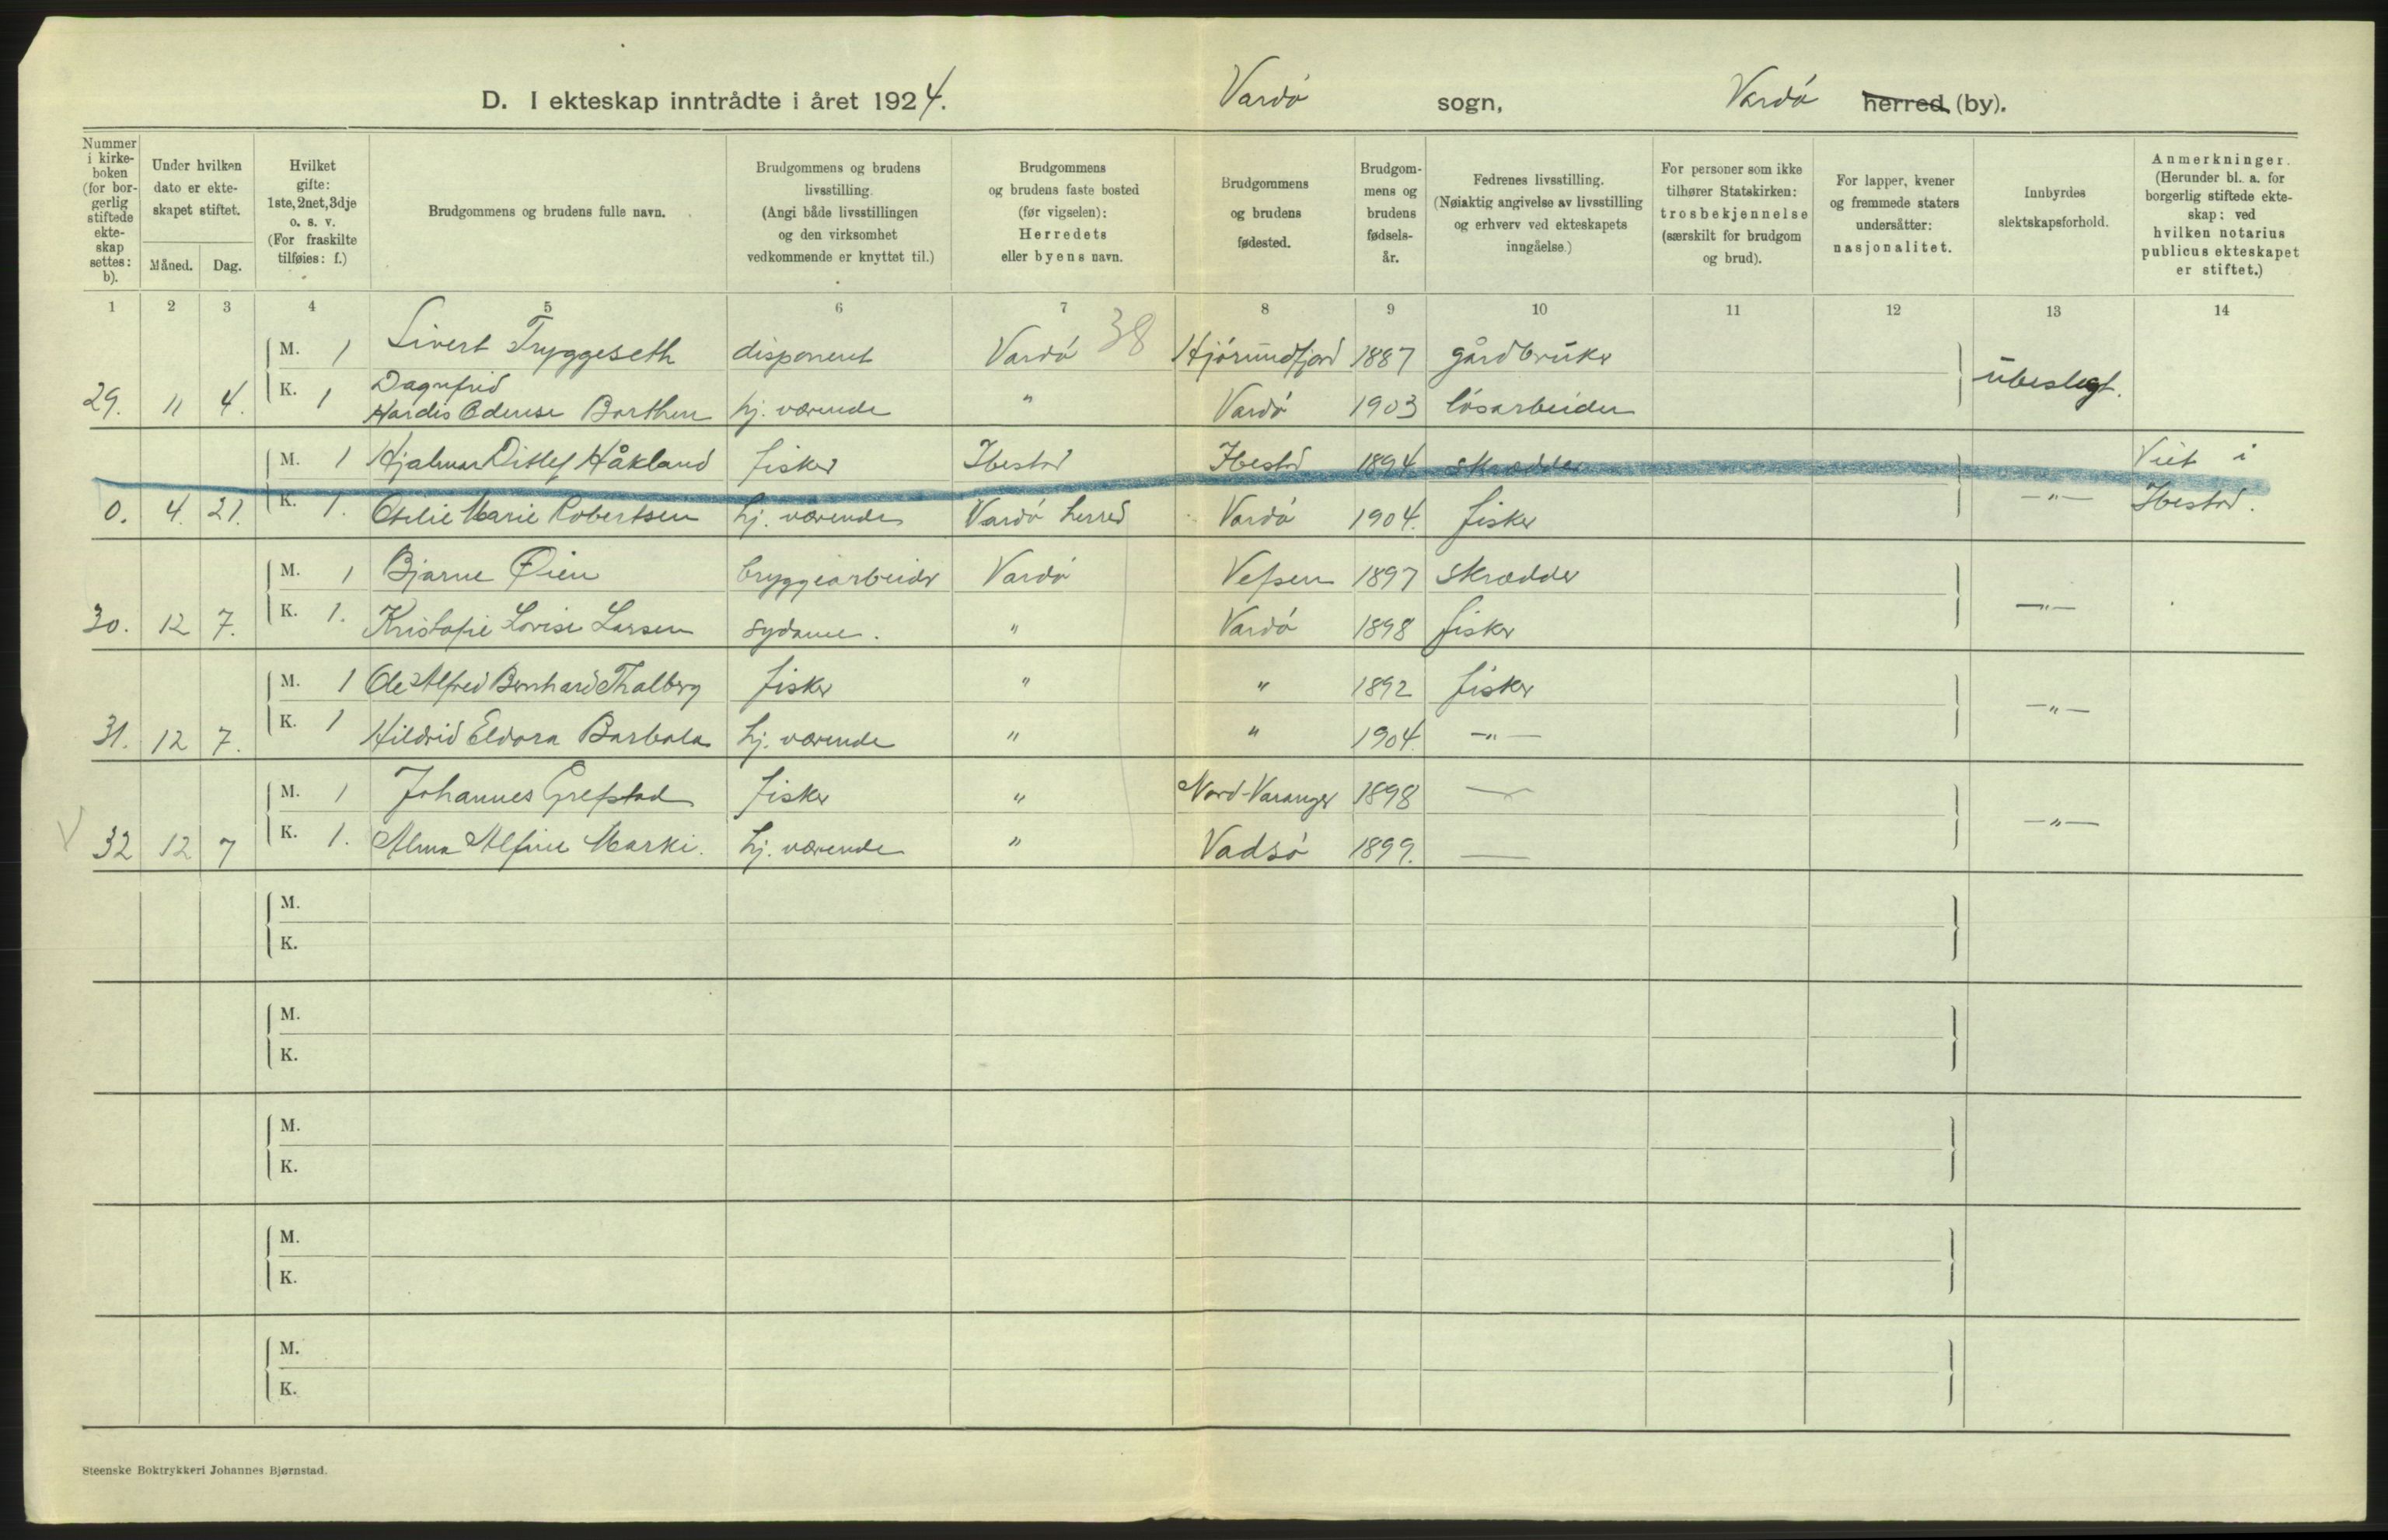 D. I ekteskap inntrådte i året 1924. Vardø sogn, Vardø herred (by).
Nummer i kirkeboken (for borgerlig stiftede ekteskap settes: b).
Under hvilken dato er ekteskapet stiftet.
Måned. Dag.
Hvilket gifte: 1ste, 2net, 3dje o. s. v. (For fraskilte tilføies: f.)
Brudgommens og brudens fulle navn.
Brudgommens og brudens livsstilling. (Angi både livsstillingen og den virksomhet vedkommende er knyttet til.)
Brudgommens og brudens faste bosted (før vigselen): Herredets eller byens navn.
Brudgommens og brudens fødested.
Brudgommens og brudens fødselsår.
Fedrenes livsstilling. (Nøiaktig angivelse av livsstilling og erhverv ved ekteskapets inngåelse.)
For personer som ikke tilhører Statskirken: trosbekjennelse (særskilt for brudgom og brud).
For lapper, kvener og fremmede staters undersåtter: nasjonalitet.
Innbyrdes slektskapsforhold.
Anmerkninger. (Herunder bl. a. for borgerlig stiftede ekteskap: ved hvilken notarius publicus ekteskapet er stiftet.)
1 2 3 4 5 6 7 8 9 10 11 12 13 14
M. 1 Sivert Tryggeseth disponent Vardø 38 Hjørundfjord 1887 gårdbruker
29. 11 4. K. 1 Dagnfrid Hardis Odense Barthen hj. værende " Vardø 1903 løsarbeider ubeslegt.
M. 1 Hjalmar Ditlef Håkland fisker Ibestad Ibestad 1894 skrædder Viet i
0. 4. 21. K. 1. Otelie Marie Robertsen hj. værende Vardø herred Vardø 1904. fisker —"— Ibestad.
M. 1 Bjarne Øien bryggearbeider Vardø Vefsen 1897 skrædder
30. 12 7. K. 1. Kristofie Lovise Larsen sydame. " Vardø 1898 fisker —"—
M. 1 Ole Alfred Bernhard Thalberg fisker " " 1892 fisker
31. 12 7. K. 1 Hildrid Eldora Barbala hj. værende " " 1904. —"— —"—
M. 1 Johannes Grefstad fisker " Nord-Varanger 1898 —
32 12 7 K. 1. Alma Alfine Marki. hj. værende " Vadsø 1899. — —"—
M.
K.
M.
K.
M.
K.
M.
K.
M.
K.
Steenske Boktrykkeri Johannes Bjørnstad.